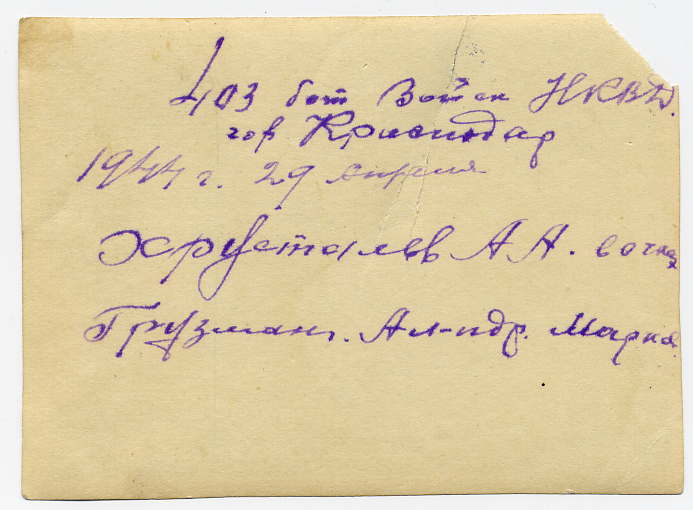 403 бат Войск НКВД.
гор Краснодар
1944 г. 29 апреля
Хрусталев А А. в очках
Грузман. Ал-ндр. Марк.